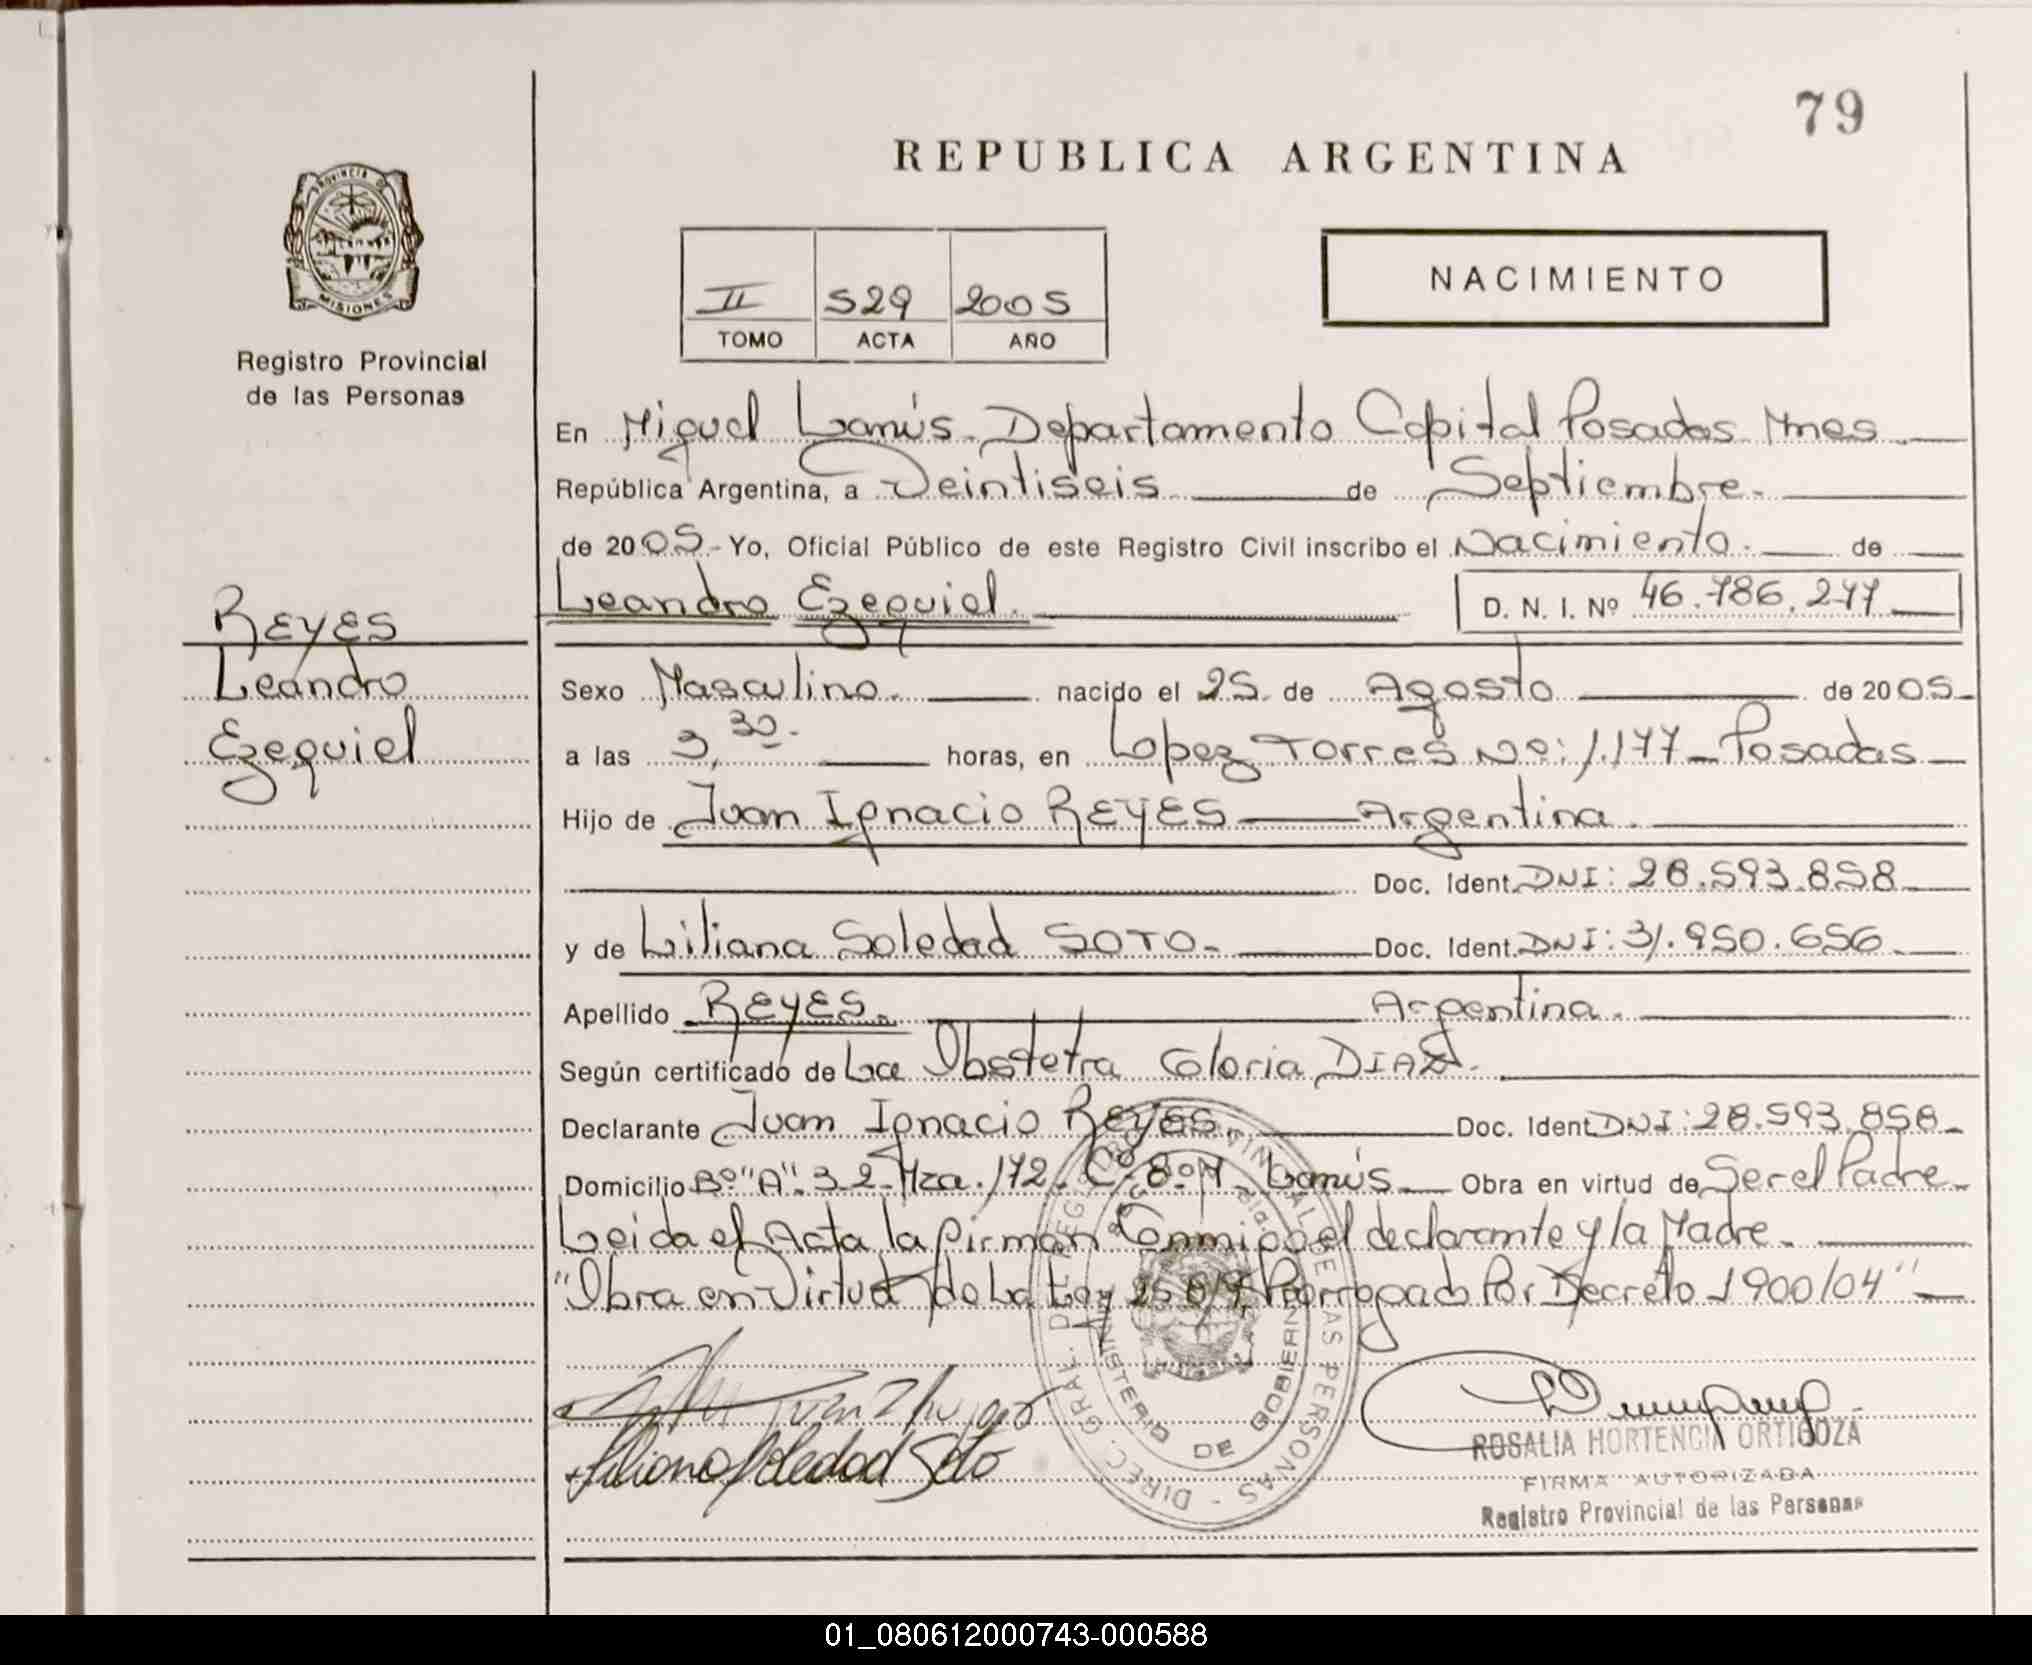 79
REPUBLICA ARGENTINA
PROVINCIA DE
MISIONES
Registro Provincial
de las Personas
II 529 2005
TOMO ACTA AÑO
NACIMIENTO
En Miguel Lanús - Departamento Capital Posadas Mnes
República Argentina, a Veintiseis de Septiembre.
de 2005 - Yo, Oficial Público de este Registro Civil inscribo el Nacimiento. de
Leandro Ezequiel. D. N. I. Nº 46.786.277
REYES
Leandro
Ezequiel
Sexo Masculino. nacido el 25. de Agosto de 2005
a las 3,30 - horas, en Lopez Torres Nº: 1.177 - Posadas
Hijo de Juan Ignacio REYES Argentina.
Doc. Ident. DNI: 28.593.858
y de Liliana Soledad SOTO - Doc. Ident. DNI: 31.950.656
Apellido REYES. Argentina.
Según certificado de La Obstetra Gloria DIAZ.
Declarante Juan Ignacio Reyes. Doc. Ident DNI: 28.593.858
Domicilio Bº "A". 3.2 - Mza. 172. C. 8. M. Lanús Obra en virtud de Ser el Padre
Leida el Acta la firman Conmigo el declarante y la Madre.
"Obra en Virtud de La Ley Prorrogado Por Decreto 1900/04"
Liliana Soledad Soto
DIREC. GRAL. DEL REG. PROVINCIAL DE LAS PERSONAS -
MINISTERIO DE GOBIERNO
ROSALIA HORTENCIA ORTIGOZA
FIRMA AUTORIZADA
Registro Provincial de las Personas
01_080612000743-000588